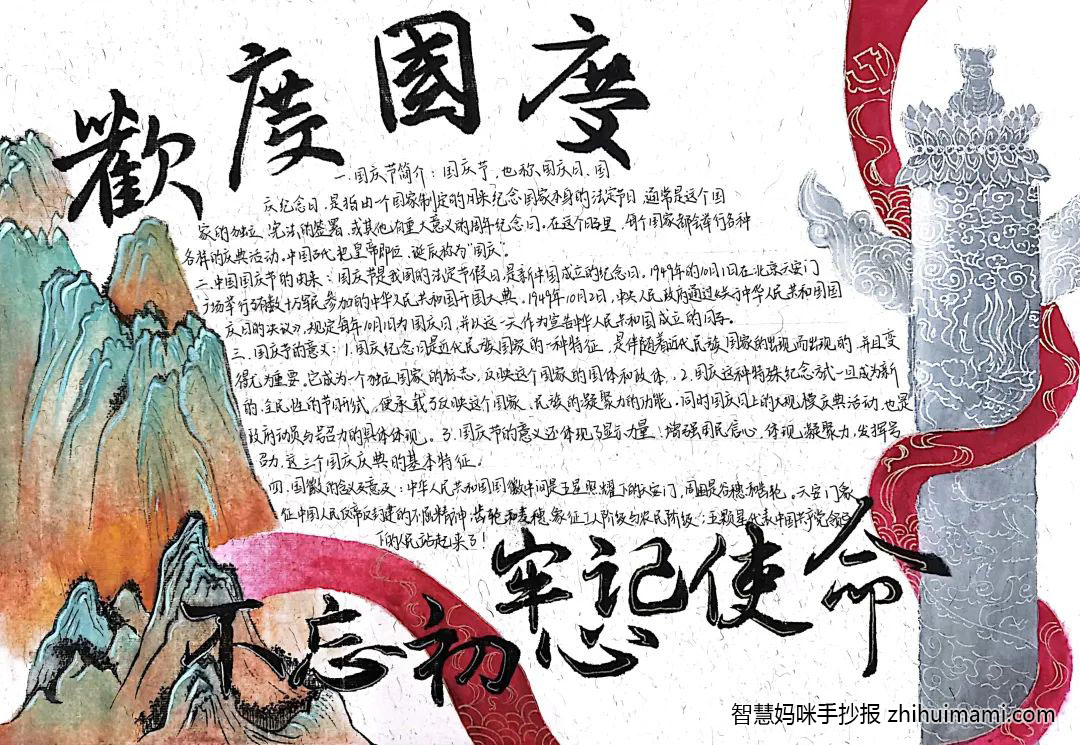 歡度國慶
一.国庆节简介：国庆节，也称国庆日、国
庆纪念日，是指由一个国家制定的用来纪念国家本身的法定节日，通常是这个国
家的独立、宪法的签署，或其他有重大意义的周年纪念日。在这个日子里，每个国家都会举行各种
各样的庆典活动。中国古代把皇帝即位、诞辰称为“国庆”。
二.中国国庆节的由来：国庆节是我国的法定节假日，是新中国成立的纪念日。1949年的10月1日在北京天安门
广场举行了有数十万军民参加的中华人民共和国开国大典。1949年10月2日，中央人民政府通过《关于中华人民共和国国
庆日的决议》，规定每年10月1日为国庆日，并以这一天作为宣告中华人民共和国成立的日子。
三.国庆节的意义：1.国庆纪念日是近代民族国家的一种特征，是伴随着近代民族国家的出现而出现的，并且变
得尤为重要。它成为一个独立国家的标志，反映这个国家的国体和政体。2.国庆这种特殊纪念方式一旦成为新
的、全民性的节日形式，便承载了反映这个国家、民族的凝聚力的功能。同时国庆日上的大规模庆典活动，也是
政府动员与号召力的具体体现。3.国庆节的意义还体现了显示力量、增强国民信心，体现凝聚力，发挥号
召力，这三个国庆庆典的基本特征。
四.国徽的含义及意义：中华人民共和国国徽中间是五星照耀下的天安门，周围是谷穗和齿轮。天安门象
征中国人民反帝反封建的不屈精神；齿轮和麦穗象征工人阶级与农民阶级；五颗星代表中国共产党领导
下的人民站起来了！
不忘初心
牢记使命
智慧妈咪手抄报 zhihuimami.com